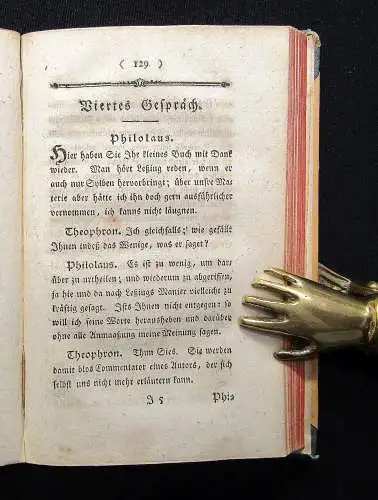 ( 129 )
Viertes Gespräch.
Philolaus.
Hier haben Sie Ihr kleines Buch mit Dank
wieder. Man hört Leßing reden, wenn er
auch nur Sylben hervorbringt; über unsre Ma-
terie aber hätte ich ihn doch gern ausführlicher
vernommen, ich kanns nicht läugnen.
Theophron. Ich gleichfalls; wie gefällt
Ihnen indeß das Wenige, was er saget?
Philolaus. Es ist zu wenig, um dar-
über zu urtheilen; und wiederum zu abgerissen,
ja hie und da nach Leßings Manier vielleicht zu
kräftig gesagt. Ists Ihnen nicht entgegen: so
will ich seine Worte herausheben und darüber
ohne alle Anmaaßung meine Meinung sagen.
Theophron. Thun Sies. Sie werden
damit blos Commentator eines Autors, der sich
selbst uns nicht mehr erläutern kann.
I 5 Phi-